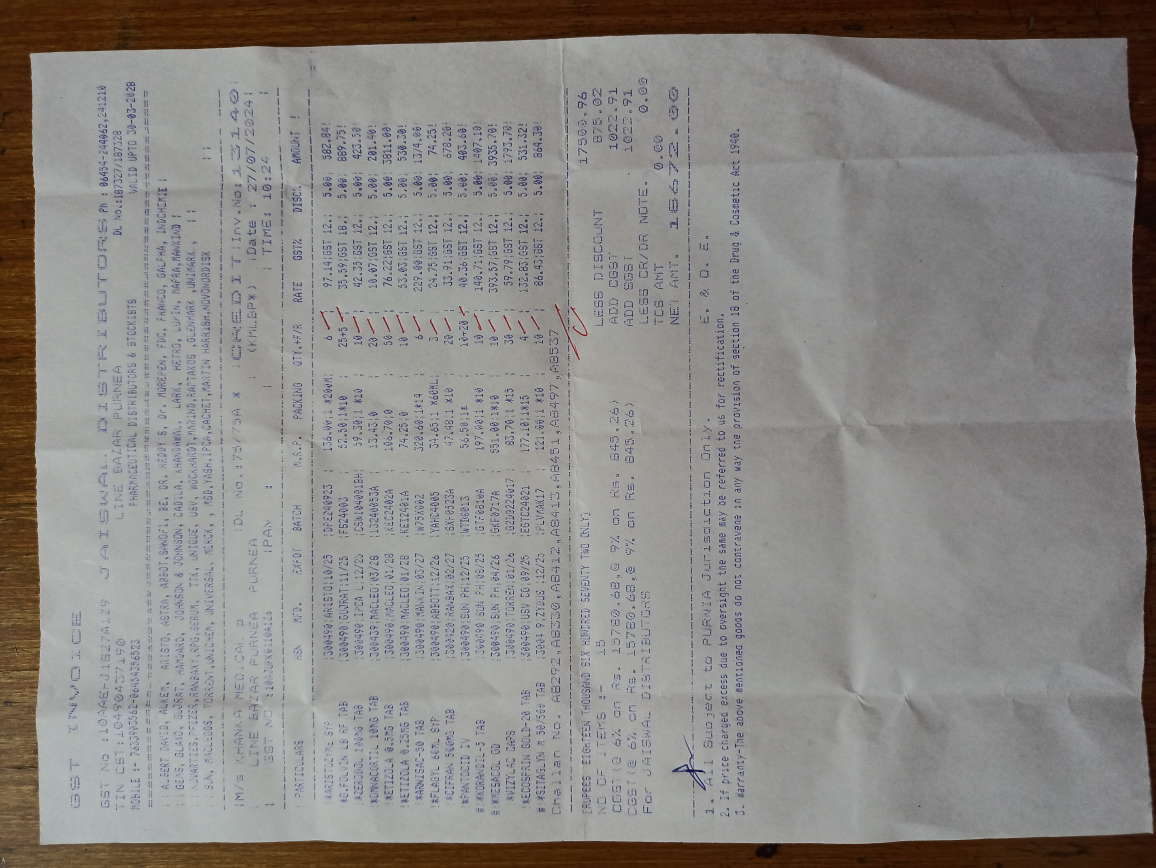 GST INVOICE
GST No :10AAEHJ1827A1Z4 JAISWAL DISTRIBUTORS Ph : 06454-244062,241210
TIN CST:10490437190 LINE BAZAR PURNEA DL No.:187327/187328
MOBILE :- 7633903562-06454356523 PHARMACEUTICAL DISTRIBUTORS & STOCKISTS VALID UPTO 30-03-2028
ALBERT DAVID, ALKEM, ARISTO, ASTRA, ABBOT,SANOFI, BE, DR. REDDY S, Dr. MOREPEN, FDC, FRANCO, GALPHA, INDCHEMIE
GENS, GLAXO, GUJRAT, HAMDARD, JOHNSON & JOHNSON, CADILA, KHANDAWAL, LARK, HETRO, LUPIN, MAPRA,MANKIND
NOVARTIES,PFIZER,RANBAXY,RPG,SERUM, TTK, UNIQUE, USV, WOCKHARDT,WARIND,RAPTAKOS ,GLENMARK ,UNIMARK,
SBA, MACLEODS, TORRENT,UNICHEM, UNIVERSAL, MERCK, MSD,YASH,IPCA,CACHET,MARTIN HARRISH,NOVONORDISK
M/s MANKA MEDICAL D DL NO.:75/75A * CREDIT Inv.No:13140
LINE BAZAR PURNEA PURNEA (KML.BP*) Date : 27/07/2024
GST NO : PAN : TIME: 10:24
PARTICULARS HSN MFD. EXPDT BATCH M.R.P. PACKING QTY.+F/R RATE GST% DISC% AMOUNT
*ARISTOZYME SYP 300490 ARISTO 10/25 DPE240923 136.00 1 *200M 6 97.14 GST 12. 5.00 582.84
GUJRAT 11/25 FS24003 52.50 1*10 25+5 35.59 GST 18. 5.00 889.75
*ZERODOL 100MG TAB 300490 IPCA L 12/26 59.30 1 *10 10 42.35 GST 12. 5.00 423.50
*OMNACORTIL 10MG TAB 300439 MACLEO 03/28 13240053A 13.43 10 20 10.07 GST 12. 5.00 201.40
*ETIZOLA 0.5MG TAB 300490 MACLEO 01/28 KEC2402A 106.70 0 50 76.22 GST 12. 5.00 3811.00
*ETIZOLA 0.25MG TAB 300490 MACLEO 01/28 KEI2401A 74.25 0 10 53.03 GST 12. 5.00 530.30
300490 MANKIN 03/27 320.60 1*14 6 229.00 GST 12. 5.00 1374.00
*FLAGYL 60ML SYP 300490 ABBOTT 12/26 YAHC4005 34.65 1 *60ML 3 24.75 GST 12. 5.00 74.25
*CIFRAN 500MG TAB 300420 RANBAX 02/27 SXF0523A 47.48 1 *10 20 33.91 GST 12. 5.00 678.20
*PANTOCID IV 300490 SUN PH 12/25 56.50 1* 10+20 40.36 GST 12. 5.00 403.60
#*KORANDIL-5 TAB 300490 SUN PH 08/25 GTF0810A 197.00 1 *10 10 140.71 GST 12. 5.00 1407.10
#*MESACOL OD 300490 SUN PH 04/26 GKF0717A 551.00 1*10 10 393.57 GST 12. 5.00 3935.70
*VIZYLAC CAPS 300490 TORREN 01/26 83.70 1 *15 30 59.79 GST 12. 5.00 1793.70
*ECOSPRIN GOLD-20 TAB 300490 USV CO 09/25 EGTC24021 177.10 1*15 4 132.83 GST 12. 5.00 531.32
#*SITAGLYN M 50/500 TAB ZYDUS 12/25 121.00 1 *10 10 86.43 GST 12. 5.00 864.30
Challan No. A8292,A8330,A8412,A8413,A8451,A8497,A8537
[RUPEES EIGHTEEN THOUSAND SIX HUNDRED SEVENTY TWO ONLY] 17500.96
NO OF ITEMS :- 15 LESS DISCOUNT 875.02
CGST(@ 6% on Rs. 15780.68,@ 9% on Rs. 845.26) ADD CGST 1022.91
CGST(@ 6% on Rs. 15780.68,@ 9% on Rs. 845.26) ADD SGST 1022.91
For JAISWAL DISTRIBUTORS LESS CR/DR NOTE. 0.00
TCS AMT 0.00
NET AMT. 18672.00
1. All Subject to PURNIA Jurisdiction Only. E. & O. E.
2. If price charged excess due to oversight the same may be referred to us for rectification.
3. Warranty-The above mentioned goods do not contravene in any way the provision of section 18 of the Drug & Cosmetic Act 1940.